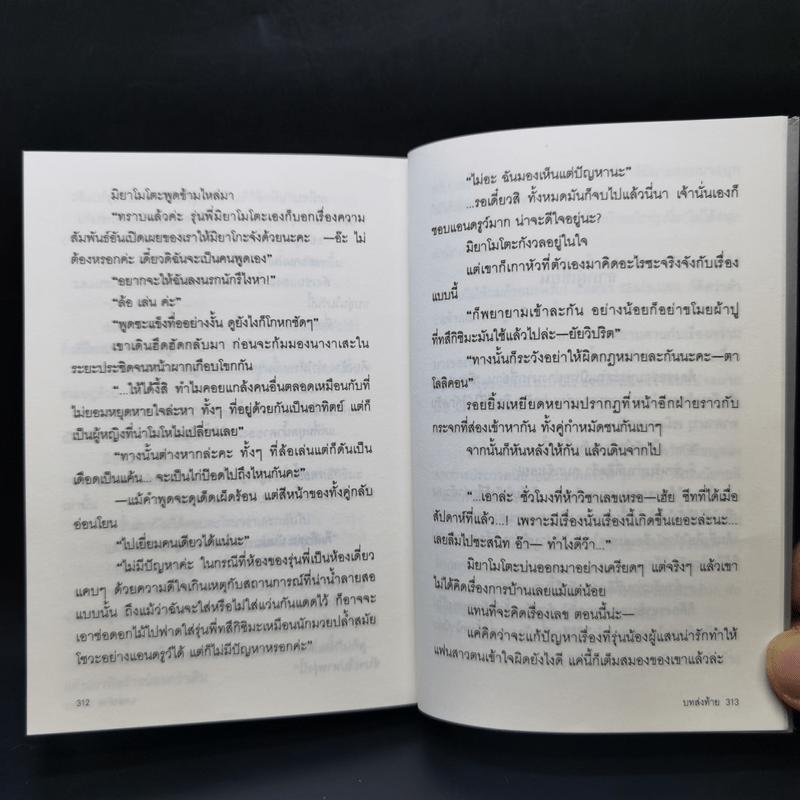 มิยาโมโตะพูดข้ามไหล่มา
“ทราบแล้วค่ะ รุ่นพี่มิยาโมโตะเองก็บอกเรื่องความ
สัมพันธ์อันเปิดเผยของเราให้มิยาโกะจังด้วยนะคะ —อ๊ะ ไม่
ต้องหรอกค่ะ เดี๋ยวดิฉันจะเป็นคนพูดเอง”
“อยากจะให้ฉันลงนรกนักรึไงหา!”
“ล้อ เล่น ค่ะ”
“พูดซะแข็งทื่ออย่างงั้น ดูยังไงก็โกหกชัดๆ”
เขาเดินฮึดฮัดกลับมา ก่อนจะก้มมองนางาเสะใน
ระยะประชิดจนหน้าผากเกือบโขกกัน
“...ให้ได้งี้สิ ทำไมคอยแกล้งคนอื่นตลอดเหมือนกับที่
ไม่ยอมหยุดหายใจล่ะหา ทั้งๆ ที่อยู่ด้วยกันเป็นอาทิตย์ แต่ก็
เป็นผู้หญิงที่น่าโมโหไม่เปลี่ยนเลย”
“ทางนั้นต่างหากล่ะคะ ทั้งๆ ที่ล้อเล่นแต่ก็ดันเป็น
เดือดเป็นแค้น... จะเป็นไก่ป๊อดไปถึงไหนกันคะ”
—แม้คำพูดจะดุเด็ดเผ็ดร้อน แต่สีหน้าของทั้งคู่กลับ
อ่อนโยน
“ไปเยี่ยมคนเดียวได้แน่นะ”
“ไม่มีปัญหาค่ะ ในกรณีที่ห้องของรุ่นพี่เป็นห้องเดี่ยว
แคบๆ ด้วยความดีใจเกินเหตุกับสถานการณ์ที่น่าน้ำลายสอ
แบบนั้น ถึงแม้ว่าฉันจะใส่หรือไม่ใส่แว่นกันแดดไว้ ก็อาจจะ
เอาช่อดอกไม้ไปฟาดใส่รุ่นพี่ทสึกิชิมะเหมือนนักมวยปล้ำสมัย
โชวะอย่างแอนดรูว์ได้ แต่ก็ไม่มีปัญหาหรอกค่ะ”
312
“ไม่อะ ฉันมองเห็นแต่ปัญหานะ”
...รอเดี๋ยวสิ ทั้งหมดมันก็จบไปแล้วนี่นา เจ้านั่นเองก็
ชอบแอนดรูว์มาก น่าจะดีใจอยู่นะ?
มิยาโมโตะกังวลอยู่ในใจ
แต่เขาก็เกาหัวที่ตัวเองมาคิดอะไรซะจริงจังกับเรื่อง
แบบนี้
“ก็พยายามเข้าละกัน อย่างน้อยก็อย่าขโมยผ้าปู
ที่ทสึกิชิมะมันใช้แล้วไปล่ะ—ยัยวิปริต”
“ทางนั้นก็ระวังอย่าให้ผิดกฎหมายละกันนะคะ—ตา
โลลิคอน”
รอยยิ้มเหยียดหยามปรากฏที่หน้าอีกฝ่ายราวกับ
กระจกที่ส่องเข้าหากัน ทั้งคู่กำหมัดชนกันเบาๆ
จากนั้นก็หันหลังให้กัน แล้วเดินจากไป
“...เอาล่ะ ชั่วโมงที่ห้าวิชาเลขเหรอ—เฮ้ย ชีทที่ได้เมื่อ
สัปดาห์ที่แล้ว...! เพราะมีเรื่องนั้นเรื่องนี้เกิดขึ้นเยอะล่ะนะ...
เลยลืมไปซะสนิท อ๊า— ทำไงดีว๊า...”
มิยาโมโตะบ่นออกมาอย่างเครียดๆ แต่จริงๆ แล้วเขา
ไม่ได้คิดเรื่องการบ้านเลยแม้แต่น้อย
แทนที่จะคิดเรื่องเลข ตอนนี้น่ะ—
แค่คิดว่าจะแก้ปัญหาเรื่องที่รุ่นน้องผู้แสนน่ารักทำให้
แฟนสาวตนเข้าใจผิดยังไงดี แค่นี้ก็เต็มสมองของเขาแล้วล่ะ
บทส่งท้าย 313